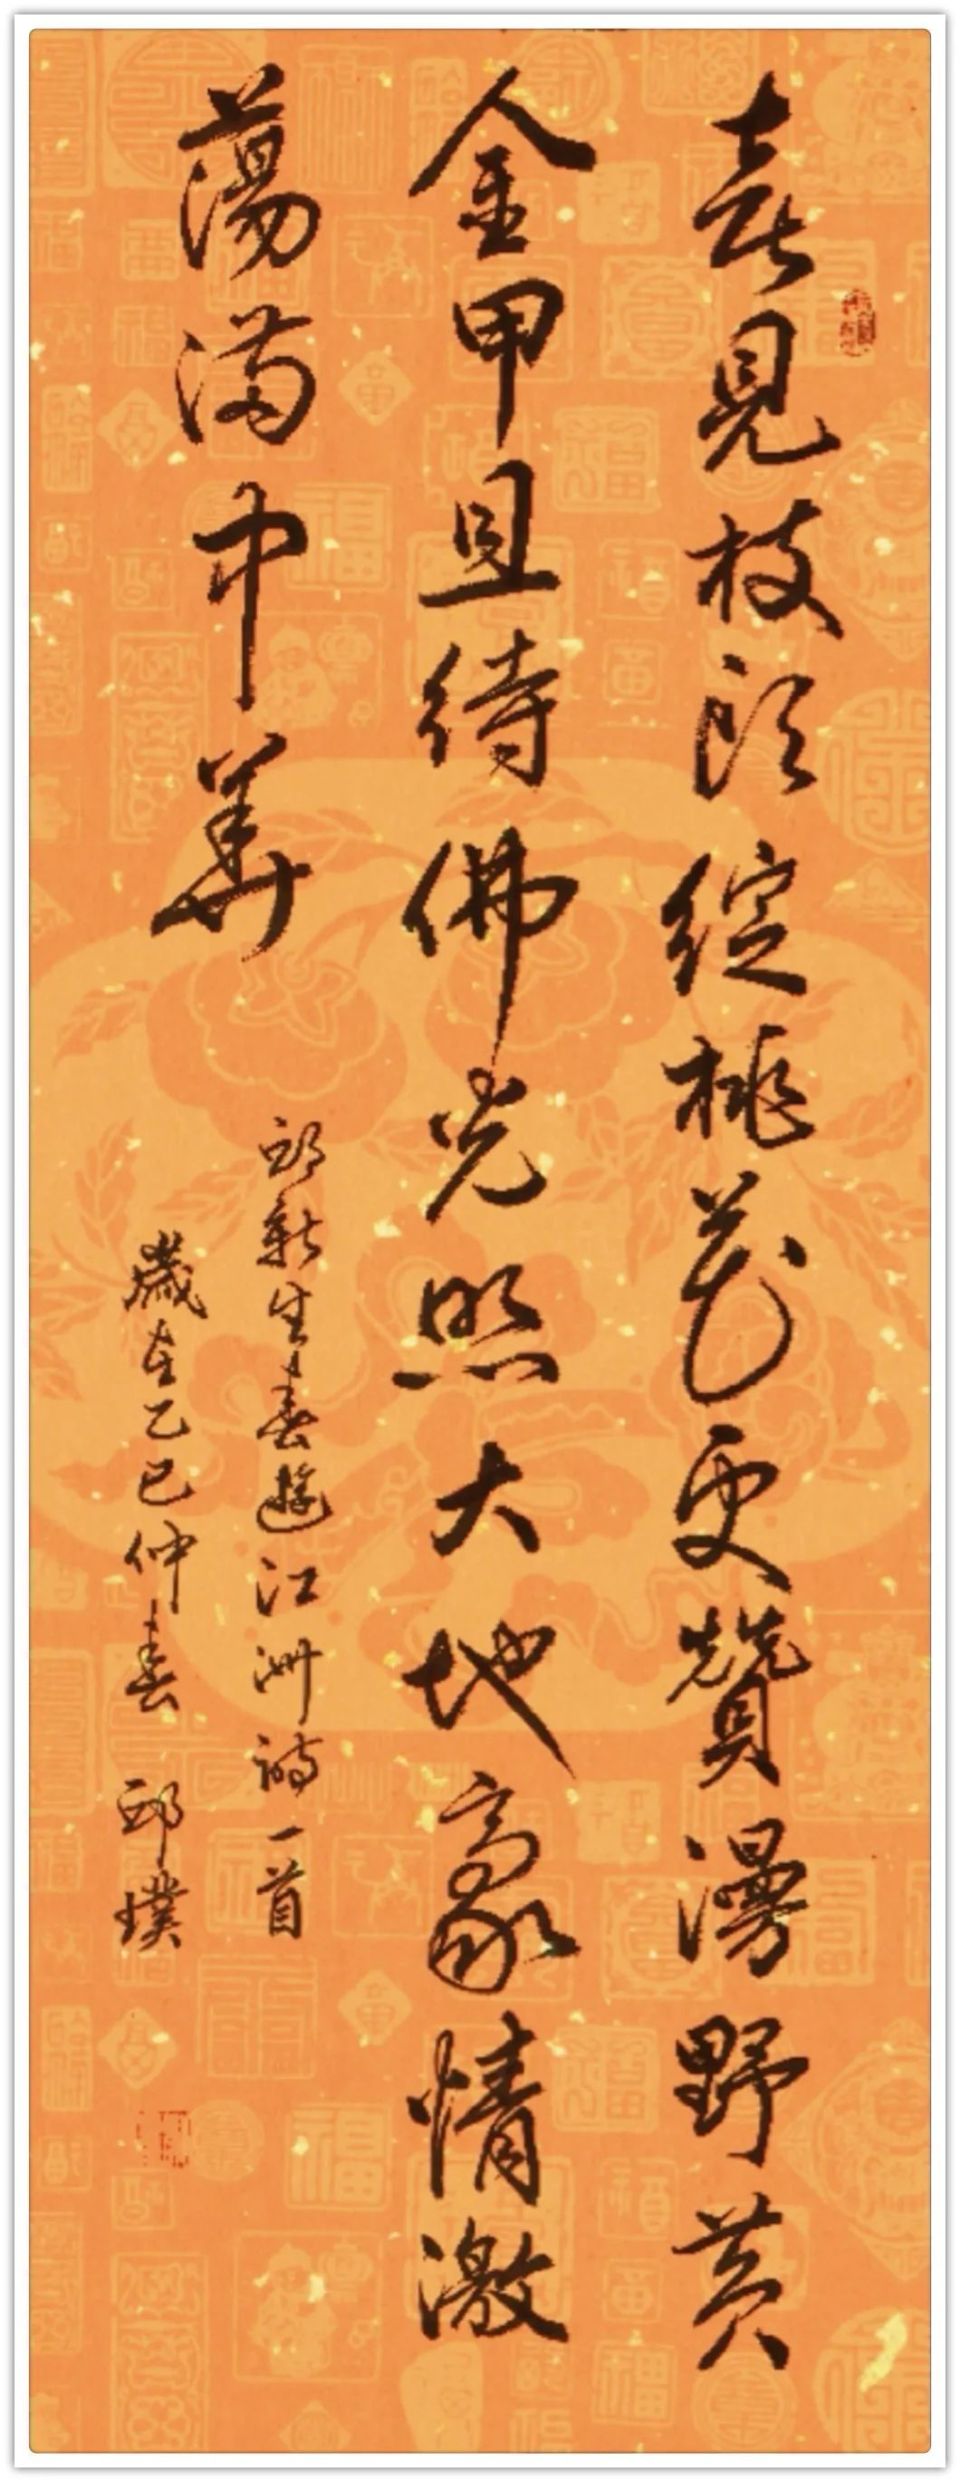 喜見枝頭綻桃花更贊漫野黄
金甲且待佛光照大地豪情激
蕩滿中華
邱新生春遊江洲詩一首
歲在乙巳仲春 邱璞